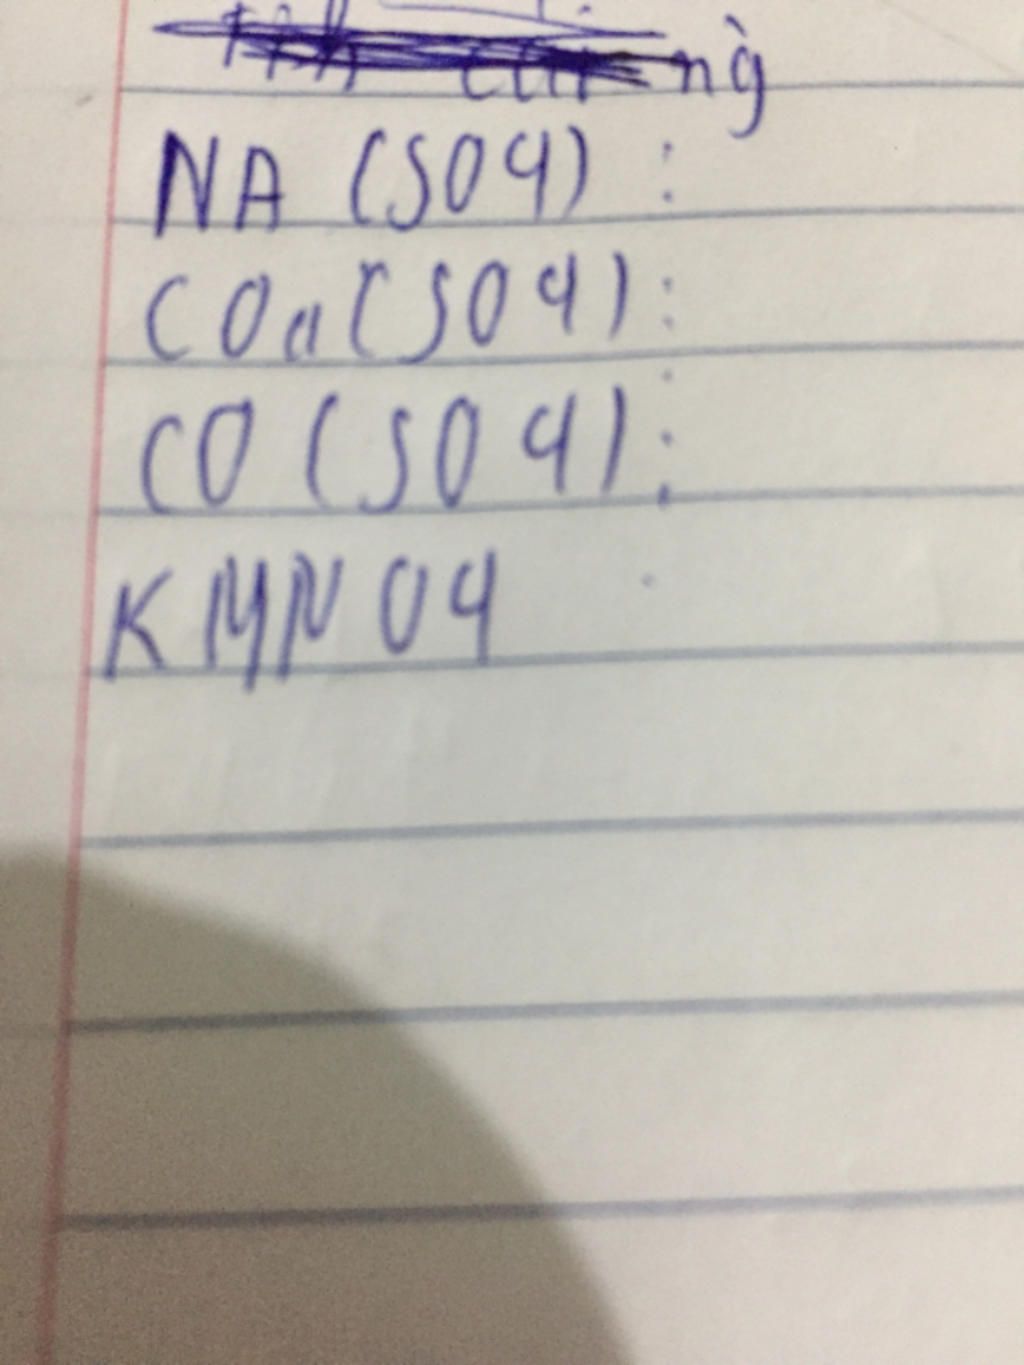 NA (SO4) :
COa (SO4) :
CO (SO4) :
KMNO4